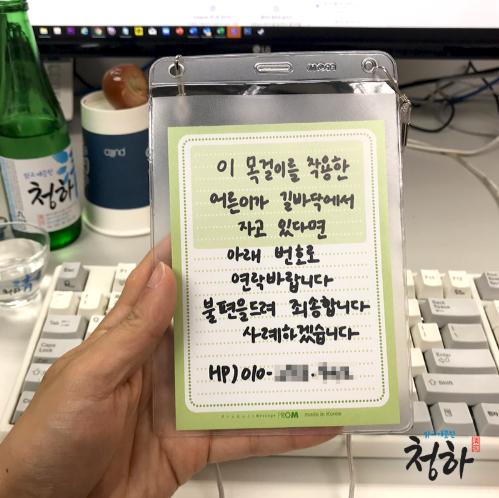 MORE
이 목걸이를 착용한
어른이가 길바닥에서
자고 있다면
아래 번호로
연락바랍니다
불편을드려 죄송합니다
사례하겠습니다
HP)010-
PROM made in Korea
청하
LG
Caps Lock
Shift
Enter
Shift
Ctrl
청하